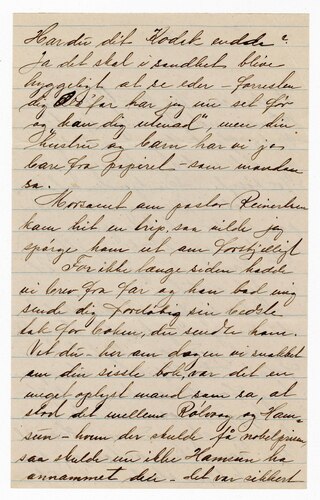 Har du dit Kodek endda?
Ja det skal i sandhet blive
hyggeligt at se eder – forresten
dig og far har jeg nu set før
og "kan dig utenad", men din
hustru og barn har vi jo
bare fra papiret – som manden
sa.
Morsamt om pastor Reinertsen
kom hit en trip, saa vilde jeg
spørge ham ut om forskjelligt
For ikke længe siden hadde
vi brev fra far og han bad mig
sende dig foreløbig sin bedste
tak for boken, du sendte ham.
Vet du – her om dagen vi snakket
om din sisste bok, var det en
meget oplyst mand som sa, at
stod det mellem Rolvaag og Ham=
sun – hvem der skulde få nobelprisen
saa skulde nu ikke Hamsun ha
annammet den – det var sikkert